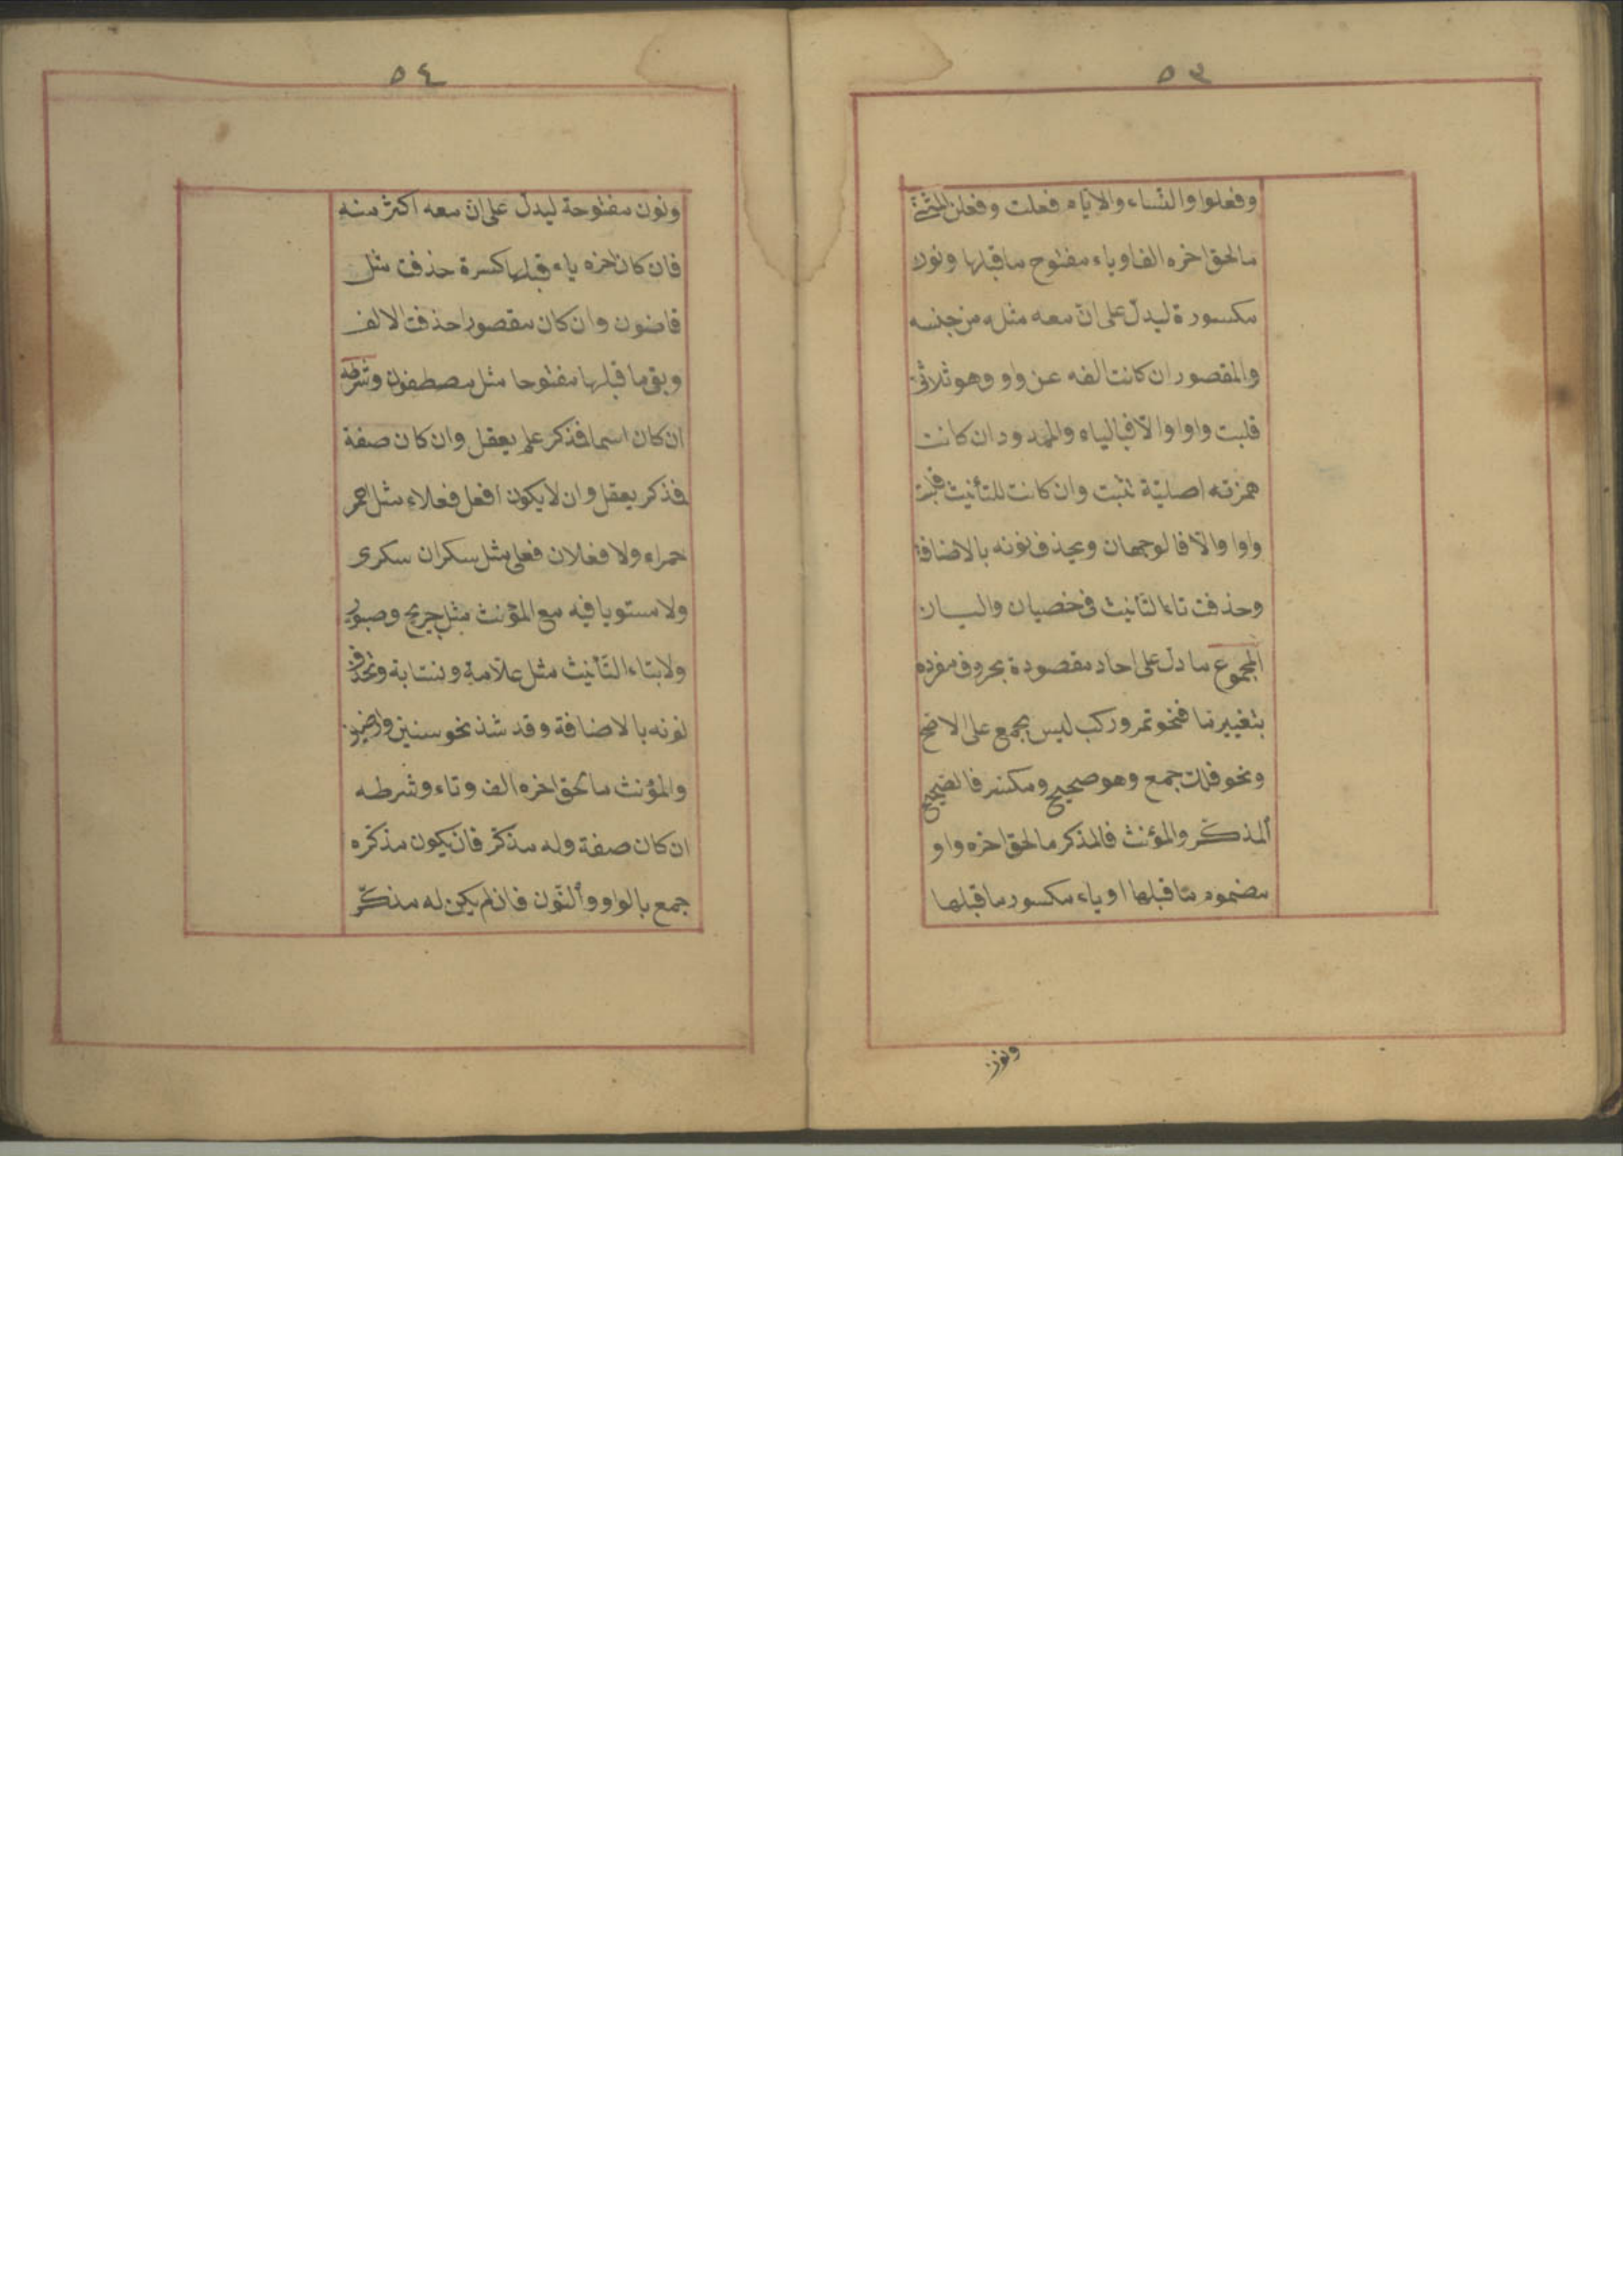 ٥٣
وفعلوا والنساء والايام فعلت وفعلن المثنى
مالحق اخره الف او ياء مفتوح ماقبلها ونون
مكسورة ليدل على انّ معه مثله من جنسه
والمقصور ان كانت الفه عن واو وهو ثلاثي
قلبت واوا والّا فبالياء والممدود ان كانت
همزته اصليّة تثبت وان كانت للتأنيث قلبت
واوا والّا فالوجهان ويحذف نونه بالاضافة
وحذفت تاء التأنيث فى خصيان واليان
المجموع مادل على احاد مقصودة بحروف مفرده
بتغيير ما فنحو تمر وركب ليس بجمع على الاصح
ونحو فلك جمع وهو صحيح ومكسر فالصحيح
ألمذكّر والمؤنث فالمذكر مالحق اخره واو
مضموم ماقبلها او ياء مكسور ماقبلها
ونون
٥٤
ونون مفتوحة ليدل على انّ معه اكثر منه
فان كان اخره ياء قبلها كسرة حذفت مثل
قاضون وان كان مقصورا حذفت الالف
وبقى ماقبلها مفتوحا مثل مصطفون وشرطه
ان كان اسما فذكر علم يعقل وان كان صفة
فذكر يعقل وان لا يكون افعل فعلاء مثل احمر
حمراء ولا فعلان فعلى مثل سكران سكرى
ولا مستويا فيه مع المؤنث مثل جريح وصبور
ولا بتاء التأنيث مثل علّامة ونسّابة وتحذف
نونه بالاضافة وقد شذ نحو سنين وارضين
والمؤنث مالحق اخره الف وتاء وشرطه
ان كان صفة وله مذكر فان يكون مذكره
جمع بالواو وألنّون فان لم يكن له مذكّر